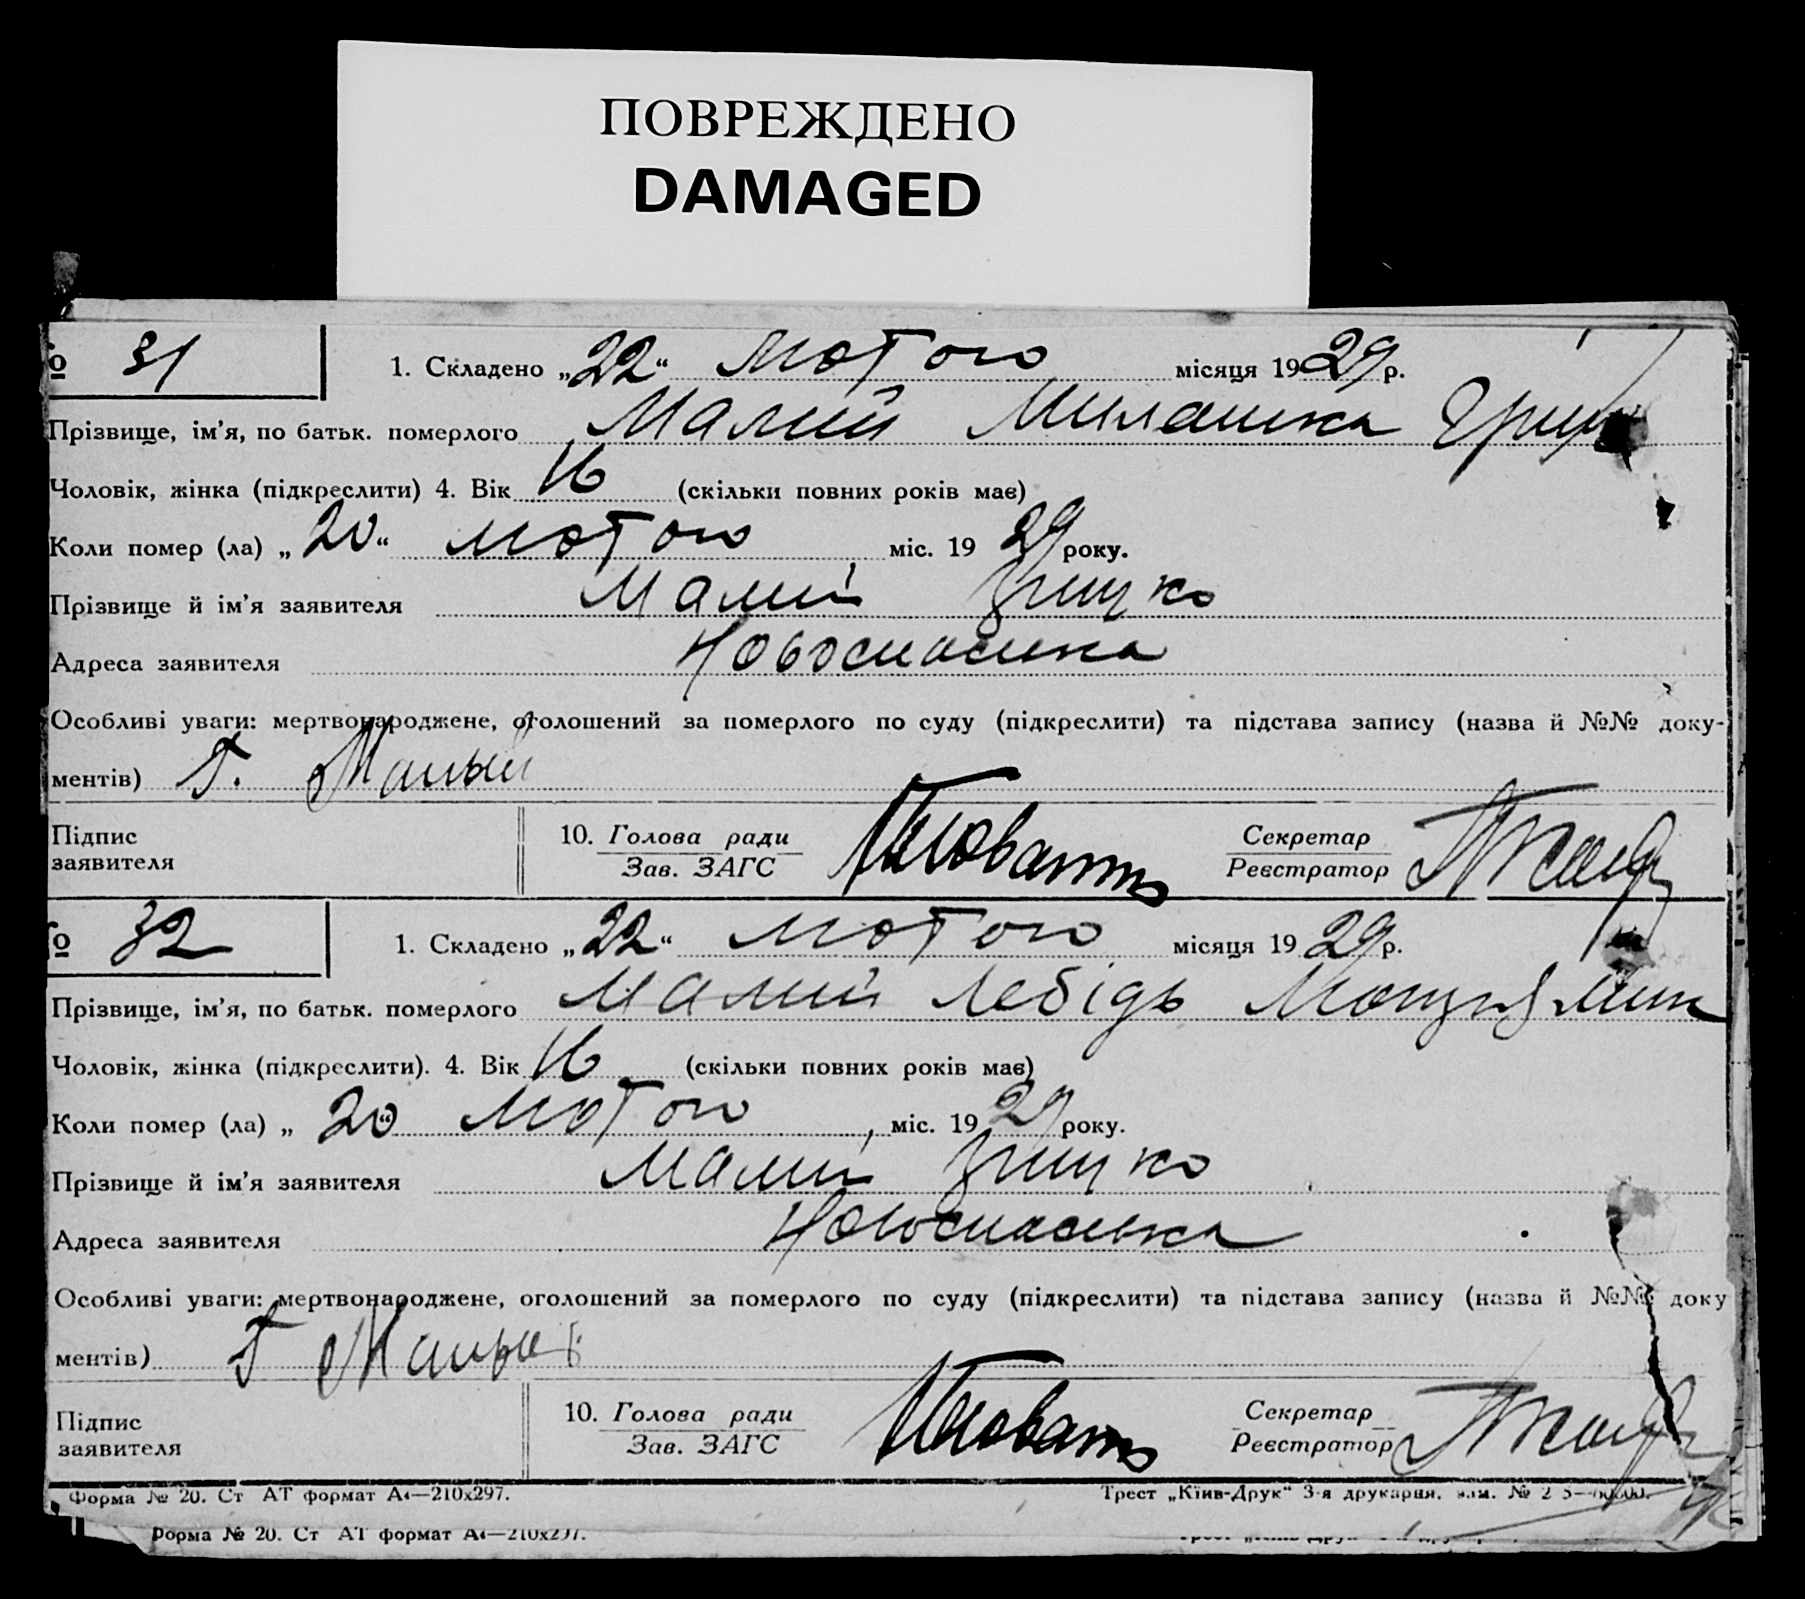 ПОВРЕЖДЕНО
DAMAGED
№ 31
1. Складено „22“ лютого місяця 1929 р.
Прізвище, ім’я, по батьк. померлого Малий Милашка Гриц
Чоловік, жінка (підкреслити) 4. Вік 16 (скільки повних років має)
Коли помер (ла) „20“ лютого міс. 1929 року.
Прізвище й ім’я заявителя Малий Грицко
Адреса заявителя Новоспаська
Особливі уваги: мертвонароджене, оголошений за померлого по суду (підкреслити) та підстава запису (назва й №№ доку-
ментів) Г. Малый
Підпис заявителя
10. Голова ради
Зав. ЗАГС
Секретар
Реєстратор
№ 32
1. Складено „22“ лютого місяця 1929 р.
Прізвище, ім’я, по батьк. померлого Малий Лебідь
Чоловік, жінка (підкреслити). 4. Вік 16 (скільки повних років має)
Коли помер (ла) „20“ лютого, міс. 1929 року.
Прізвище й ім’я заявителя Малий Грицко
Адреса заявителя Новоспаська
Особливі уваги: мертвонароджене, оголошений за померлого по суду (підкреслити) та підстава запису (назва й №№ доку
ментів) Г Малый
Підпис заявителя
10. Голова ради
Зав. ЗАГС
Секретар
Реєстратор
Форма № 20. Ст АТ формат А4—210х297.
Трест „Київ-Друк“ 3-я друкарня, зам. №
Форма № 20. Ст АТ формат А4—210х297.